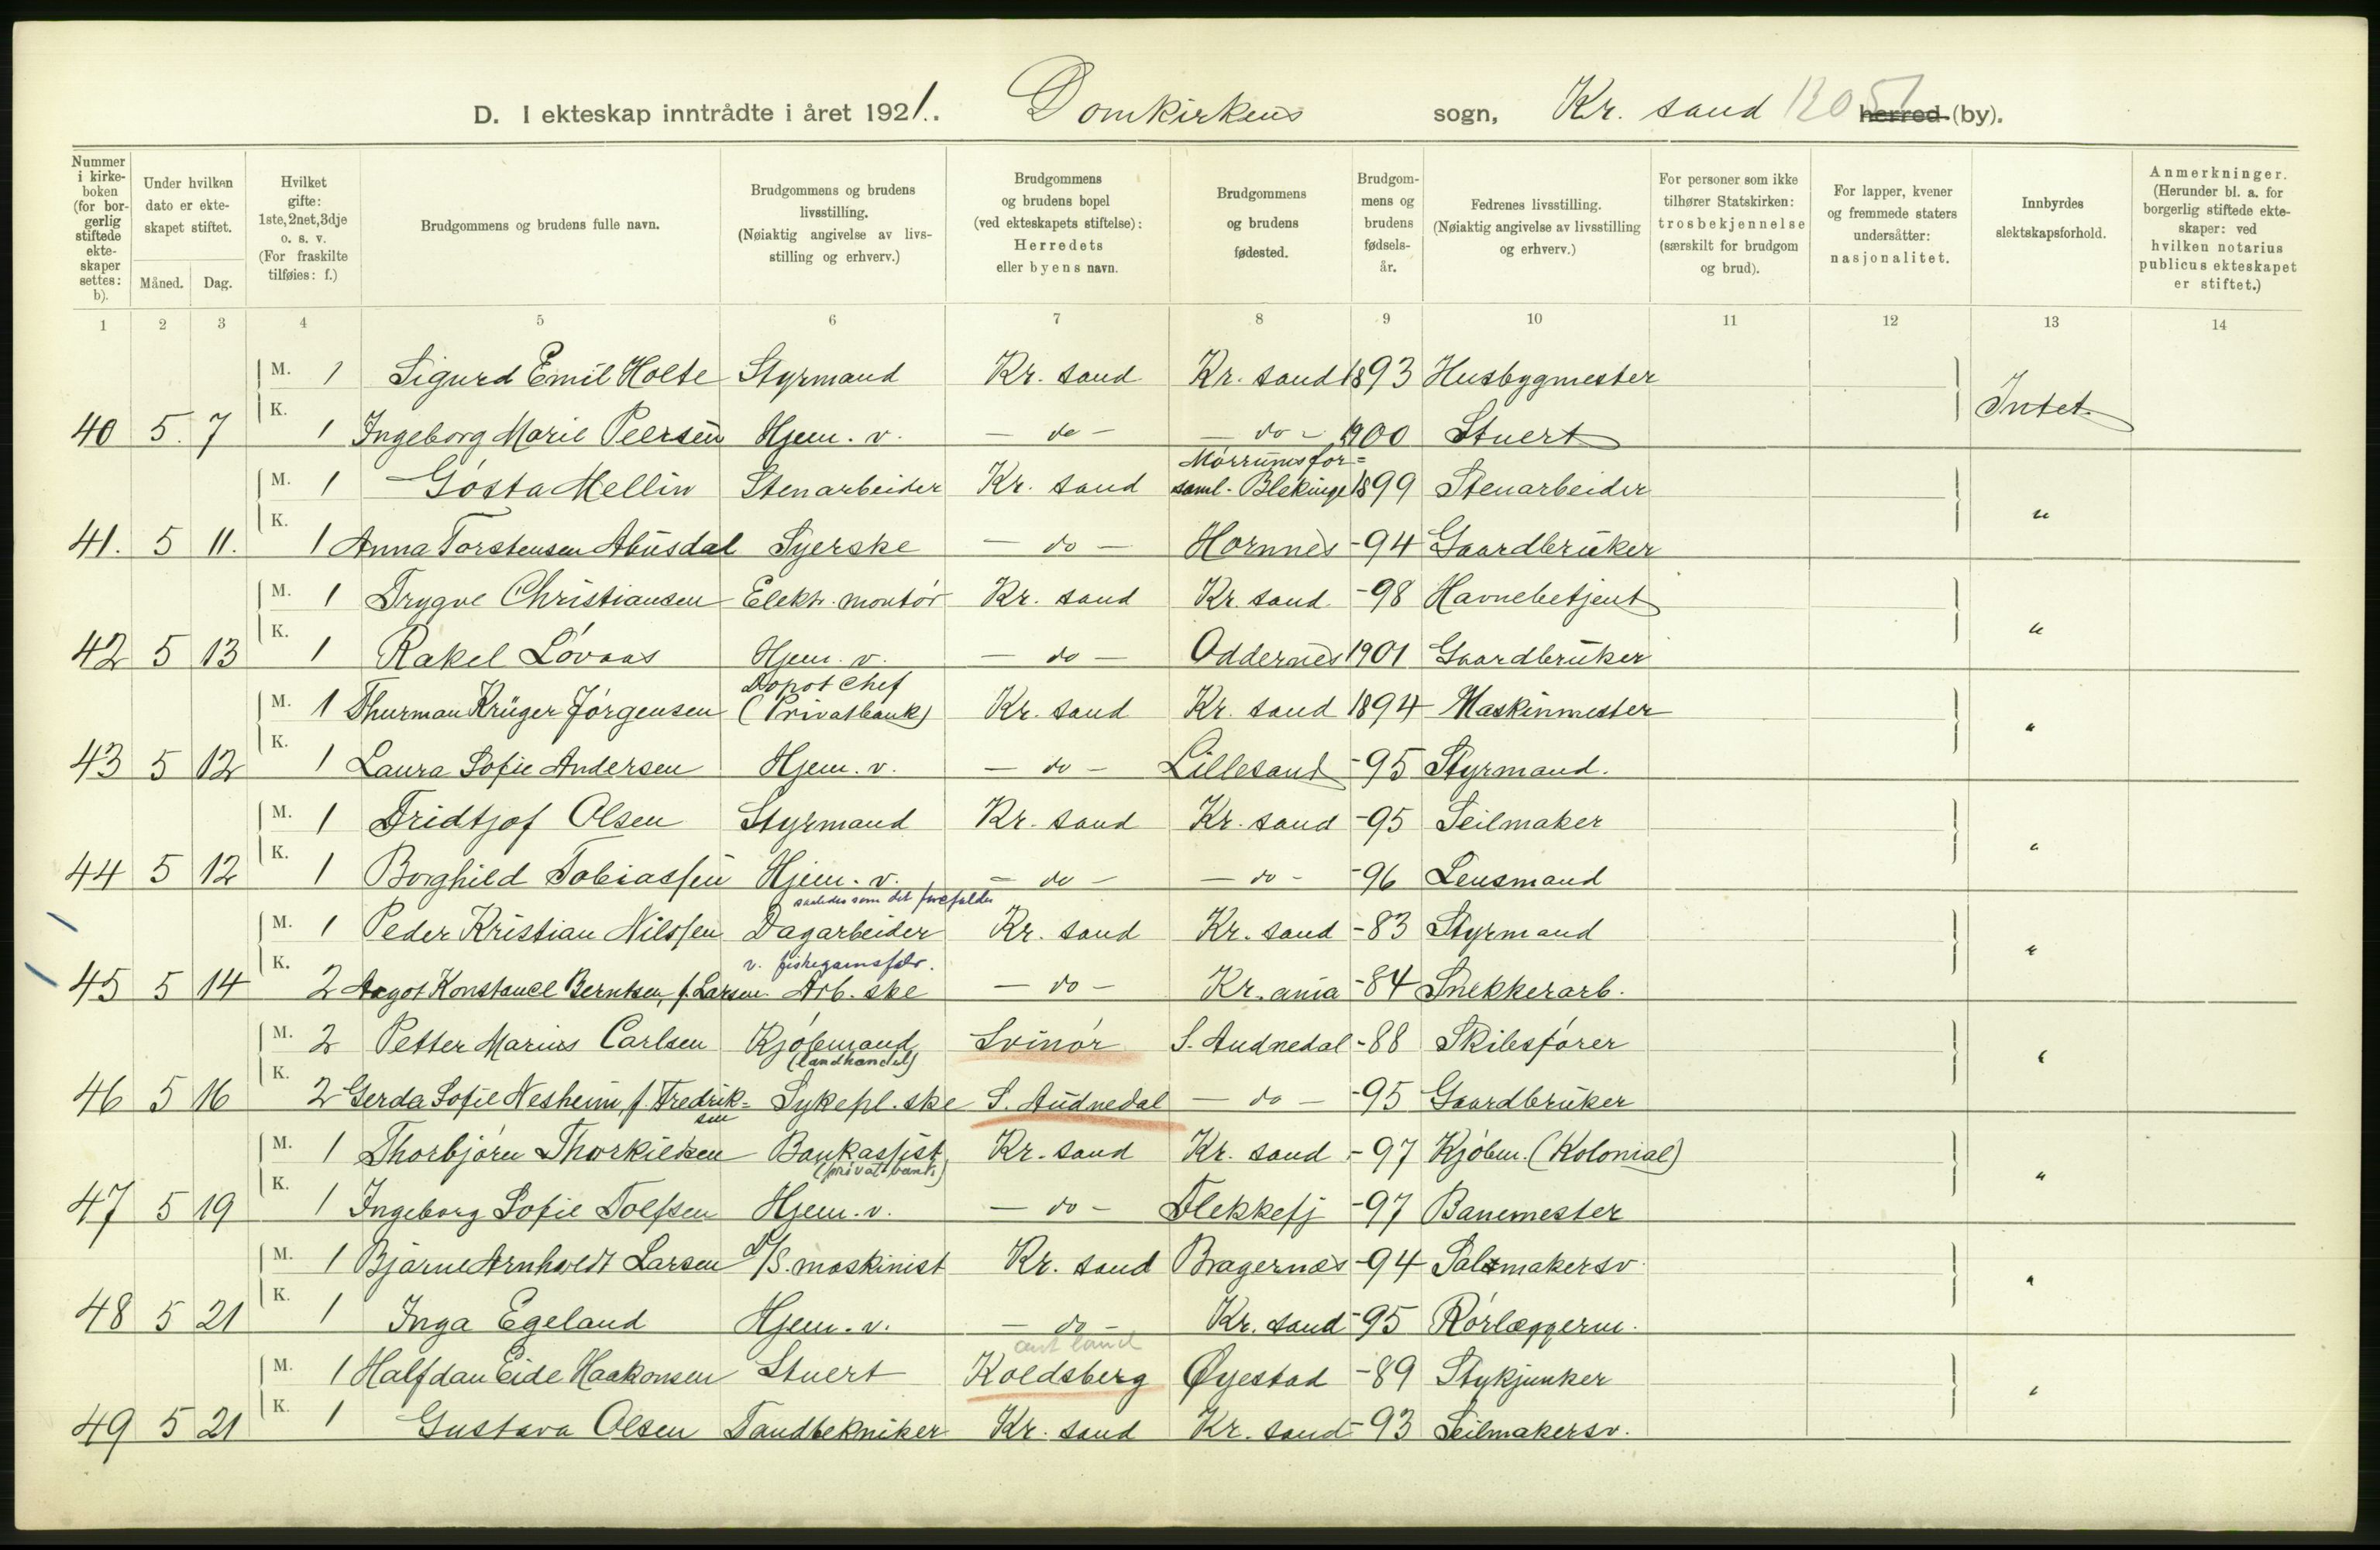 D. I ekteskap inntrådte i året 1921. Domkirkens sogn, Kr. sand herred (by).
Nummer i kirkeboken (for borgerlig stiftede ekteskaper settes: b).
Under hvilken dato er ekteskapet stiftet.
Måned. Dag.
Hvilket gifte: 1ste, 2net, 3dje o. s. v. (For fraskilte tilføies: f.)
Brudgommens og brudens fulle navn.
Brudgommens og brudens livsstilling. (Nøiaktig angivelse av livsstilling og erhverv.)
Brudgommens og brudens bopel (ved ekteskapets stiftelse): Herredets eller byens navn.
Brudgommens og brudens fødested.
Brudgommens og brudens fødselsår.
Fedrenes livsstilling. (Nøiaktig angivelse av livsstilling og erhverv.)
For personer som ikke tilhører Statskirken: trosbekjennelse (særskilt for brudgom og brud).
For lapper, kvener og fremmede staters undersåtter: nasjonalitet.
Innbyrdes slektskapsforhold.
Anmerkninger. (Herunder bl. a. for borgerlig stiftede ekteskaper: ved hvilken notarius publicus ekteskapet er stiftet.)
1 2 3 4 5 6 7 8 9 10 11 12 13 14
M. 1 Sigurd Emil Holte Styrmand Kr. sand Kr. sand 1893 Husbygmester
40 5. 7 K. 1 Ingeborg Marie Peersen Hjem. v. - do - - do - 1900 Stuert Intet.
Mörrums for=
M. 1 Gösta Mellin Stenarbeider Kr. sand saml. Blekinge 1899 Stenarbeider
41. 5 11. K. 1 Anna Torstensen Abusdal Syerske - do - Hornnes -94 Gaardbruker "
M. 1 Trygve Christiansen Elektr. montör Kr. sand Kr. sand -98 Havnebetjent
42 5 13 K. 1 Rakel Lövaas Hjem. v. - do - Oddernes 1901 Gaardbruker "
Dopot chef
M. 1 Thurman Krüger Jörgensen (Privatbank) Kr. sand Kr. sand 1894 Maskinmester
43 5 12 K. 1 Laura Sofie Andersen Hjem. v. - do - Lillesand -95 Styrmand. "
M. 1 Fridtjof Olsen Styrmand Kr. sand Kr. sand -95 Seilmaker
44 5 12 K. 1 Borghild Tobiassen Hjem. v. - do - - do - -96 Lensmand "
saaledes som det forefalder
M. 1 Peder Kristian Nilssen Dagarbeider Kr. sand Kr. sand -83 Styrmand
v. fiskegarnsfabr.
45 5 14 K. 2 Aagot Konstance Berntsen f. Larsen Arb. ske - do - Kr.ania -84 Snekkerarb. "
M. 2 Petter Marius Carlsen Kjöbmand Svinör S. Audnedal -88 Skibsförer
(landhandel)
46 5 16 K. 2 Gerda Sofie Nesheim f. Fredrik= Sykepl. ske S. Audnedal - do - -95 Gaardbruker "
sen
M. 1 Thorbjörn Thorkilsen Bankassist Kr. sand Kr. sand -97 Kjöbm. (Kolonial)
(privat bank)
47 5 19 K. 1 Ingeborg Sofie Tolfsen Hjem. v. - do - Flekkefj -97 Banemester "
M. 1 Bjarne Arnholdt Larsen D/S. maskinist Kr. sand Bragernæs -94 Salmakersv.
48 5 21 K. 1 Inga Egeland Hjem. v. - do - Kr. sand -95 Rörlæggerm. "
M. 1 Halfdan Eide Haakonsen Stuert Koldsberg Øyestad -89 Stykjunker
49 5 21 K. 1 Gustava Olsen Tandtekniker Kr. sand Kr. sand -93 Seilmakersv. "